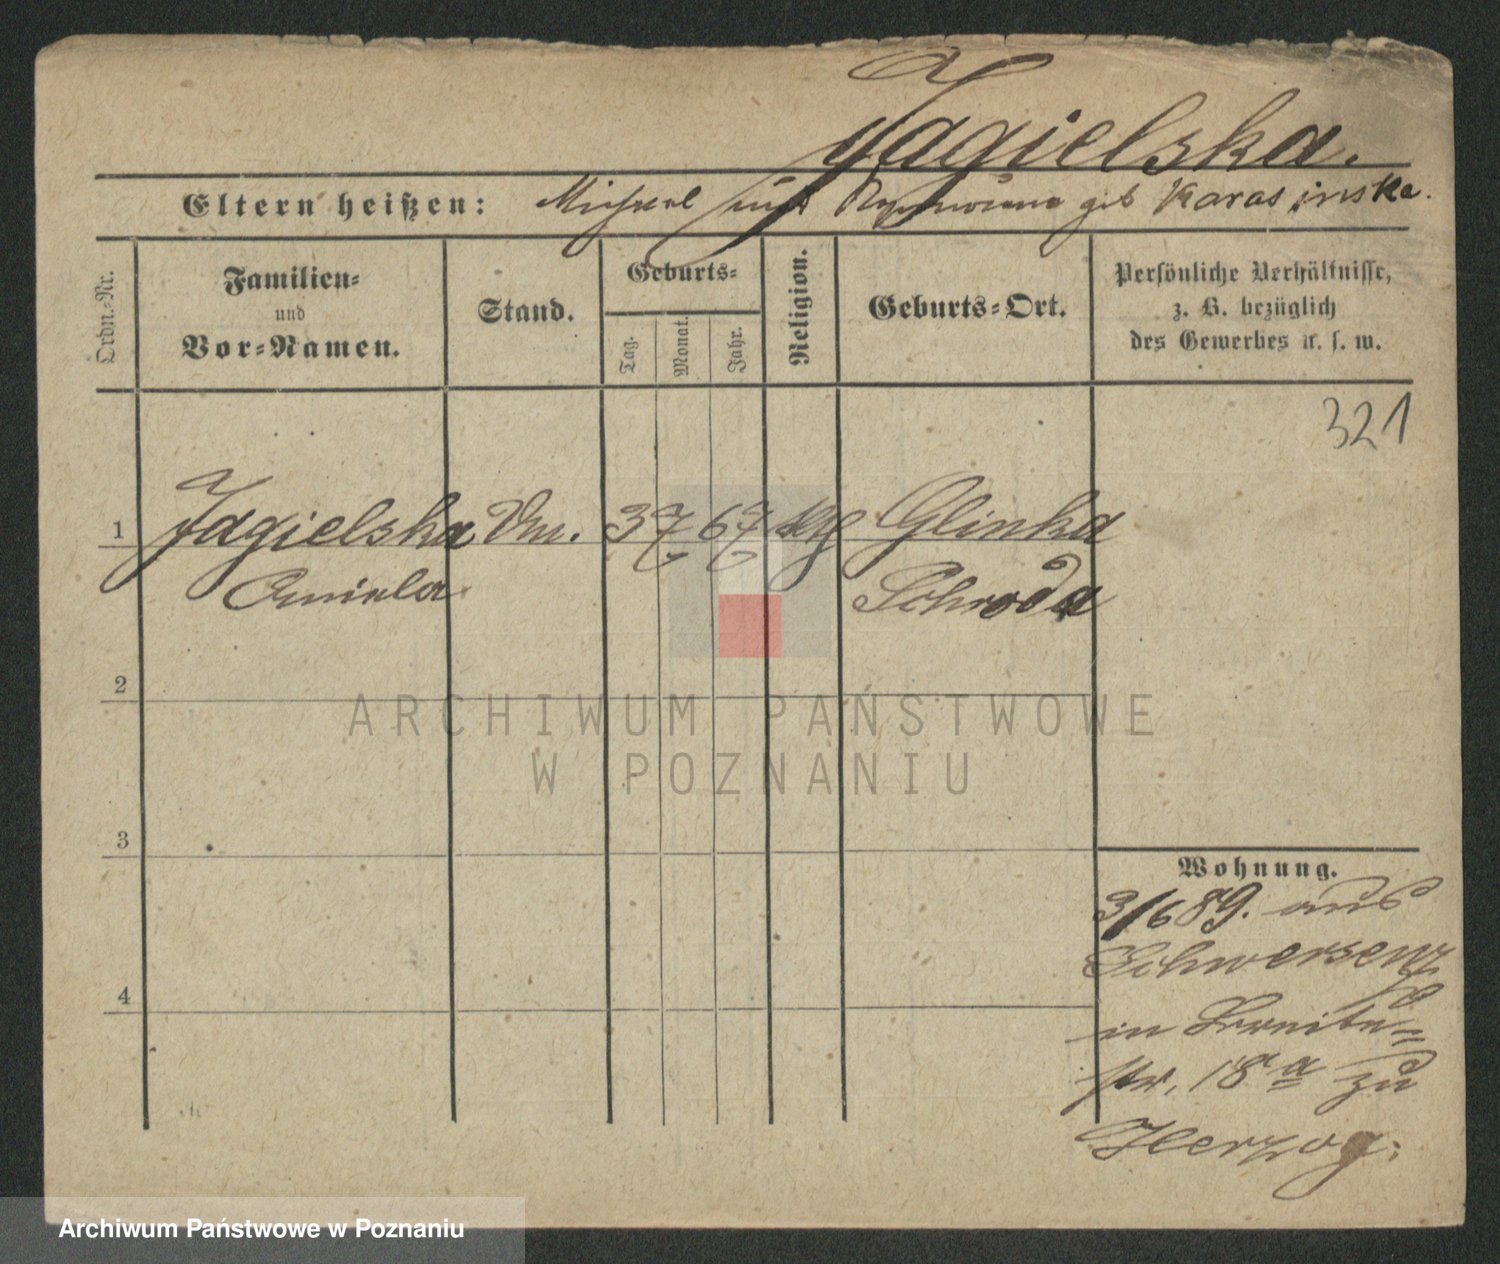 Jagielska.
Eltern heißen: Michael und gib Karasinska.
Ordn.-Nr.
Familien-
und
Vor-Namen.
Stand.
Geburts-
Tag.
Monat.
Jahr.
Religion.
Geburts-Ort.
Persönliche Verhältnisse,
z. B. bezüglich
des Gewerbes u. s. w.
321
1 Jagielska Dm. 3 7 67 kth Glinka
Aniela Schroda
2
3
4
Wohnung.
3/6 89. aus
Schwersenz
in Breite-
str. 18 a zu
Herzog.
ARCHIWUM PAŃSTWOWE
W POZNANIU
Archiwum Państwowe w Poznaniu